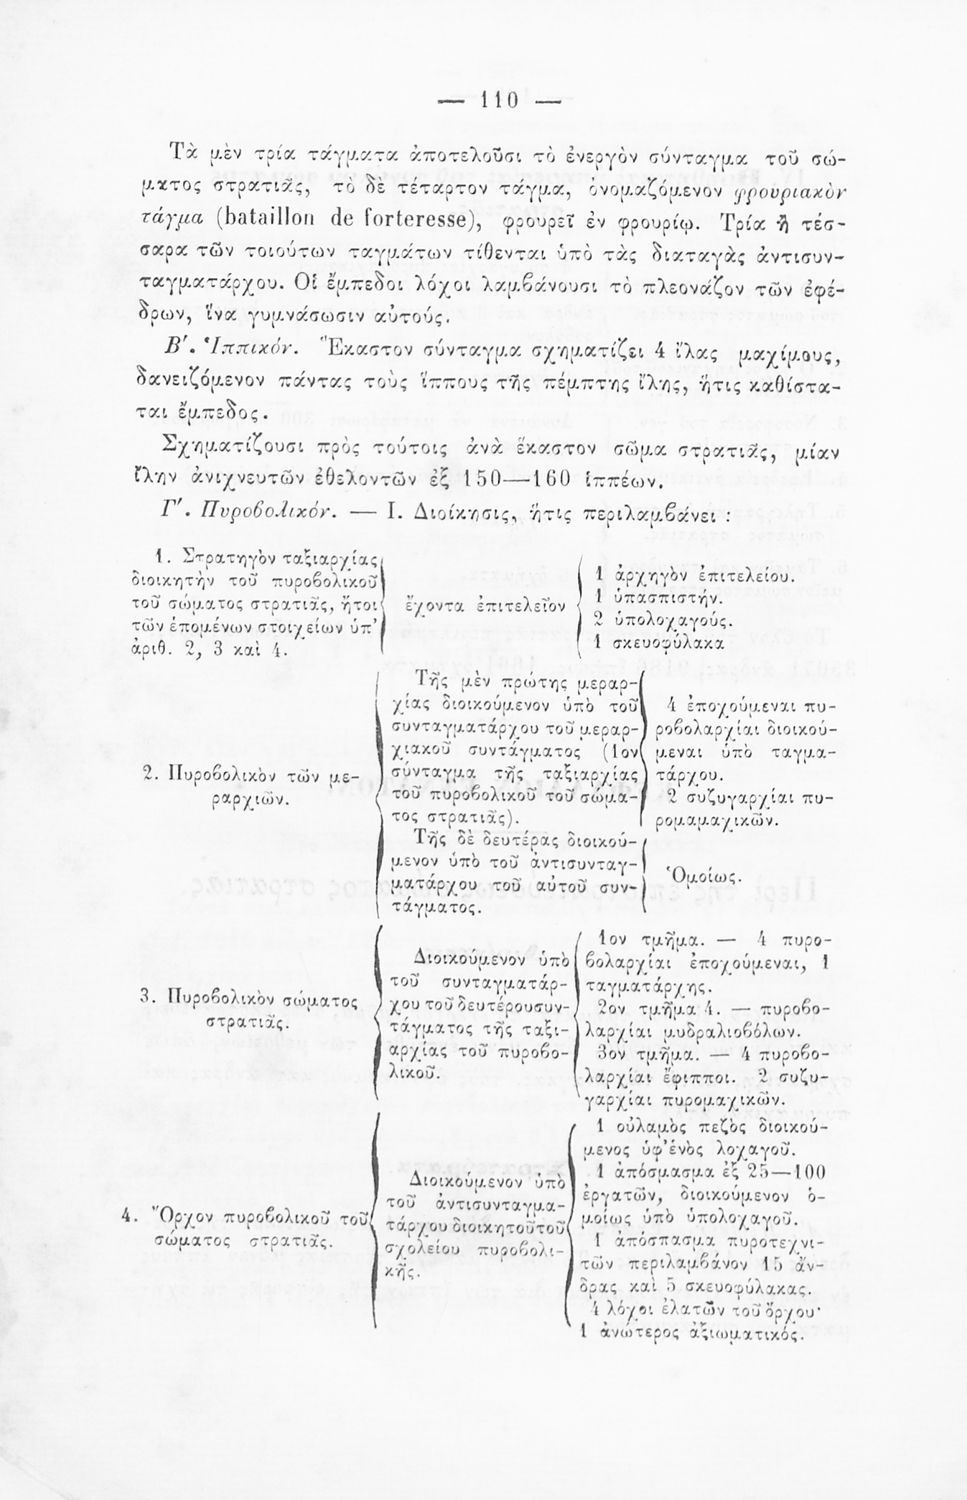 — 110 —
Τὰ μὲν τρία τάγματα ἀποτελοῦσι τὸ ἐνεργὸν σύνταγμα τοῦ σώ-
ματος στρατιᾶς, τὸ δὲ τέταρτον τάγμα, ὀνομαζόμενον φρουριακὸν
τάγμα (bataillon de forteresse), φρουρεῖ ἐν φρουρίῳ. Τρία ἢ τέσ-
σαρα τῶν τοιούτων ταγμάτων τίθενται ὑπὸ τὰς διαταγὰς ἀντισυν-
ταγματάρχου. Οἱ ἔμπεδοι λόχοι λαμβάνουσι τὸ πλεονάζον τῶν ἐφέ-
δρων, ἵνα γυμνάσωσιν αὐτούς.
Β'. Ἱππικόν. Ἕκαστον σύνταγμα σχηματίζει 4 ἴλας μαχίμους,
δανειζόμενον πάντας τοὺς ἵππους τῆς πέμπτης ἴλης, ἥτις καθίστα-
ται ἔμπεδος.
Σχηματίζουσι πρὸς τούτοις ἀνὰ ἕκαστον σῶμα στρατιᾶς, μίαν
ἴλην ἀνιχνευτῶν ἐθελοντῶν ἐξ 150—160 ἱππέων.
Γ'. Πυροβολικόν. — Ι. Διοίκησις, ἥτις περιλαμβάνει :
1. Στρατηγὸν ταξιαρχίας
διοικητὴν τοῦ πυροβολικοῦ
τοῦ σώματος στρατιᾶς, ἤτοι
τῶν ἑπομένων στοιχείων ὑπ'
ἀριθ. 2, 3 καὶ 4.
ἔχοντα ἐπιτελεῖον
1 ἀρχηγὸν ἐπιτελείου.
1 ὑπασπιστήν.
2 ὑπολοχαγούς.
1 σκευοφύλακα
2. Πυροβολικὸν τῶν με-
ραρχιῶν.
Τῆς μὲν πρώτης μεραρ-
χίας διοικούμενον ὑπὸ τοῦ
συνταγματάρχου τοῦ μεραρ-
χιακοῦ συντάγματος (1ον
σύνταγμα τῆς ταξιαρχίας
τοῦ πυροβολικοῦ τοῦ σώμα-
τος στρατιᾶς).
4 ἐποχούμεναι πυ-
ροβολαρχίαι διοικού-
μεναι ὑπὸ ταγμα-
τάρχου.
2 συζυγαρχίαι πυ-
ρομαμαχικῶν.
Τῆς δὲ δευτέρας διοικού-
μενον ὑπὸ τοῦ ἀντισυνταγ-
ματάρχου τοῦ αὐτοῦ συν-
τάγματος.
Ὁμοίως.
3. Πυροβολικὸν σώματος
στρατιᾶς.
Διοικούμενον ὑπὸ
τοῦ συνταγματάρ-
χου τοῦ δευτέρου συν-
τάγματος τῆς ταξι-
αρχίας τοῦ πυροβο-
λικοῦ.
1ον τμῆμα. — 4 πυρο-
βολαρχίαι ἐποχούμεναι, 1
ταγματάρχης.
2ον τμῆμα 4. — πυροβο-
λαρχίαι μυδραλιοβόλων.
3ον τμῆμα. — 4 πυροβο-
λαρχίαι ἔφιπποι. 2 συζυ-
γαρχίαι πυρομαχικῶν.
4. Ὄρχον πυροβολικοῦ τοῦ
σώματος στρατιᾶς.
Διοικούμενον ὑπὸ
τοῦ ἀντισυνταγμα-
τάρχου διοικητοῦ τοῦ
σχολείου πυροβολι-
κῆς.
1 οὐλαμὸς πεζὸς διοικού-
μενος ὑφ' ἑνὸς λοχαγοῦ.
1 ἀπόσμασμα ἐξ 25—100
ἐργατῶν, διοικούμενον ὁ-
μοίως ὑπὸ ὑπολοχαγοῦ.
1 ἀπόσπασμα πυροτεχνι-
τῶν περιλαμβάνον 15 ἄν-
δρας καὶ 5 σκευοφύλακας.
4 λόχοι ἐλατῶν τοῦ ὄρχου·
1 ἀνώτερος ἀξιωματικός.